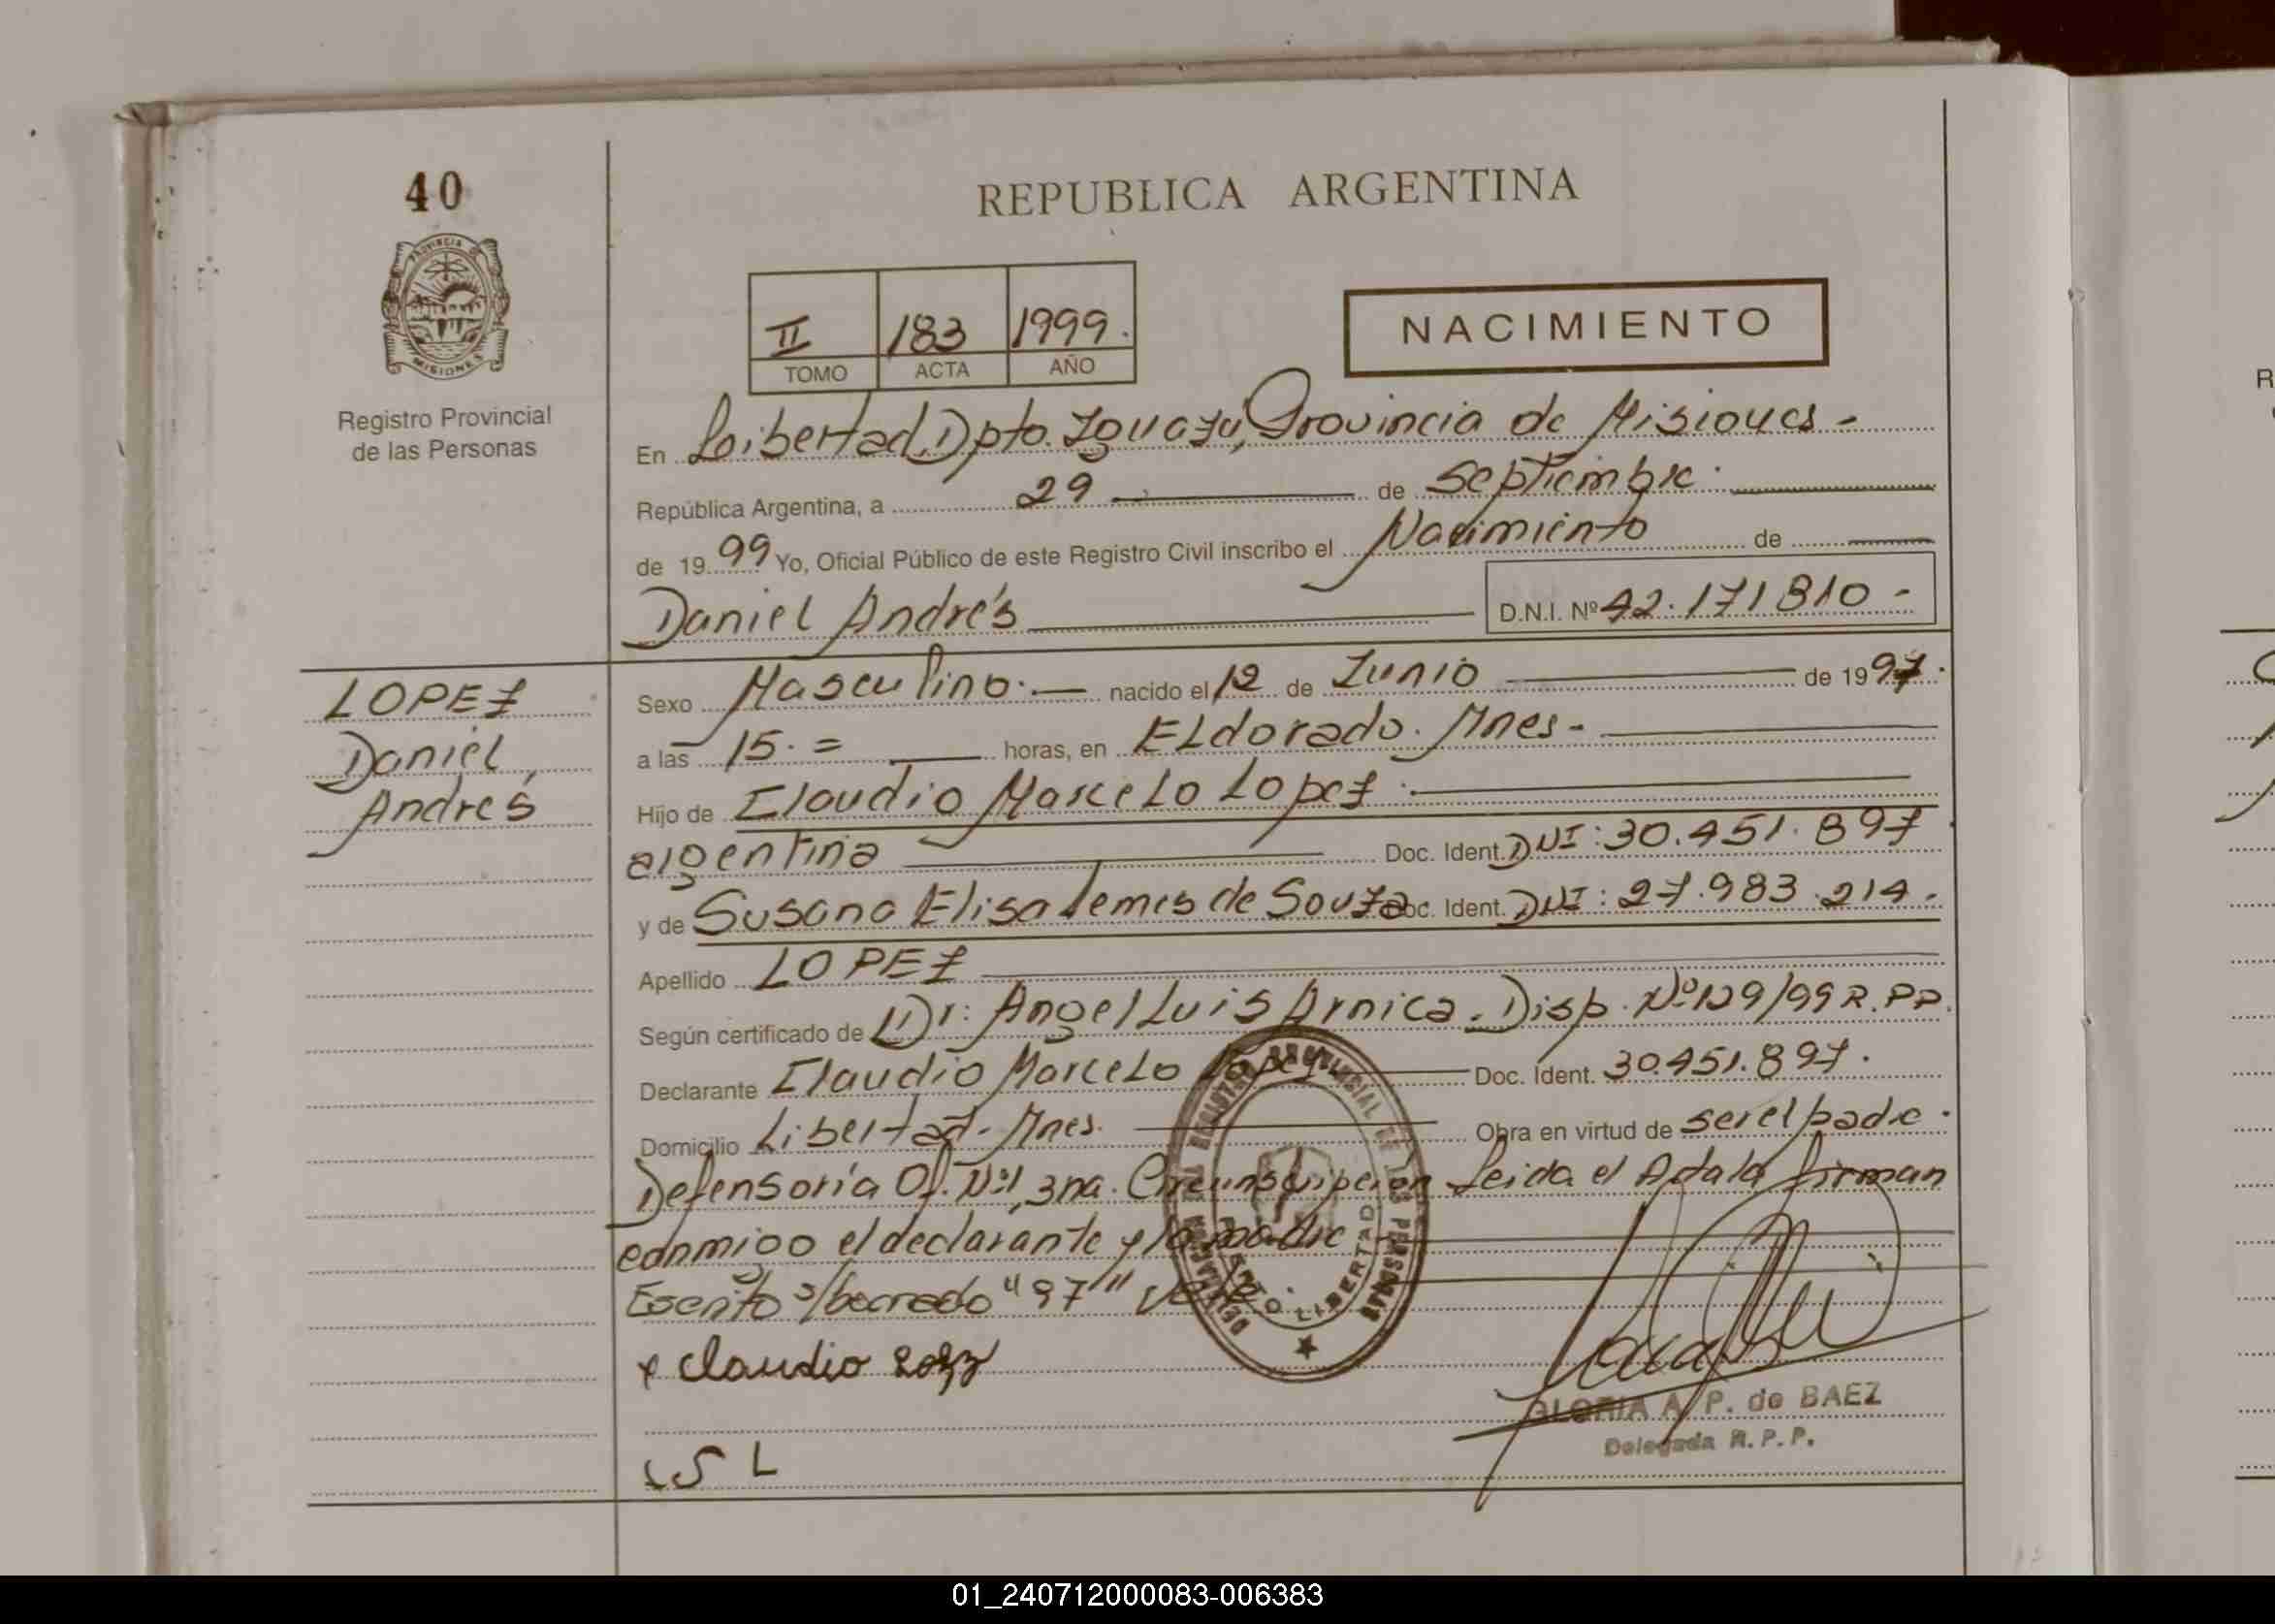 40
REPUBLICA ARGENTINA
PROVINCIA DE
MISIONES
II 183 1999.
TOMO ACTA AÑO
NACIMIENTO
Registro Provincial
de las Personas
En Libertad, Dpto. Iguazú, Provincia de Misiones -
República Argentina, a 29 de Septiembre.
de 1999 Yo, Oficial Público de este Registro Civil inscribo el Nacimiento de
Daniel Andrés D.N.I. Nº 42.171810 -
LOPEZ
Daniel
Andrés
Sexo Masculino. nacido el 12 de Junio de 1997.
a las 15. = horas, en ELdorado. Mnes -
Hijo de Claudio Marcelo Lopez.
argentina Doc. Ident. DNI: 30.451.897
y de Susana Elisa Lemes de Souza Doc. Ident. DNI: 27.983.214.
Apellido LOPEZ
Según certificado de Dr: Angel Luis Arnica. Disp. Nº 129/99 R.PP.
Declarante Claudio Marcelo Lopez Doc. Ident. 30.451.897.
Domicilio Libertad. Mnes. Obra en virtud de ser el padre.
Defensoría Of. Nº1, 3ra. Circunscripcion Leida el Acta la firman
conmigo el declarante y la madre
Escrito s/borrado "97" Vale.
x Claudio Lopez
S L
LIBERTAD
GLORIA A. P. de BAEZ
Delegada R.P.P.
01_240712000083-006383